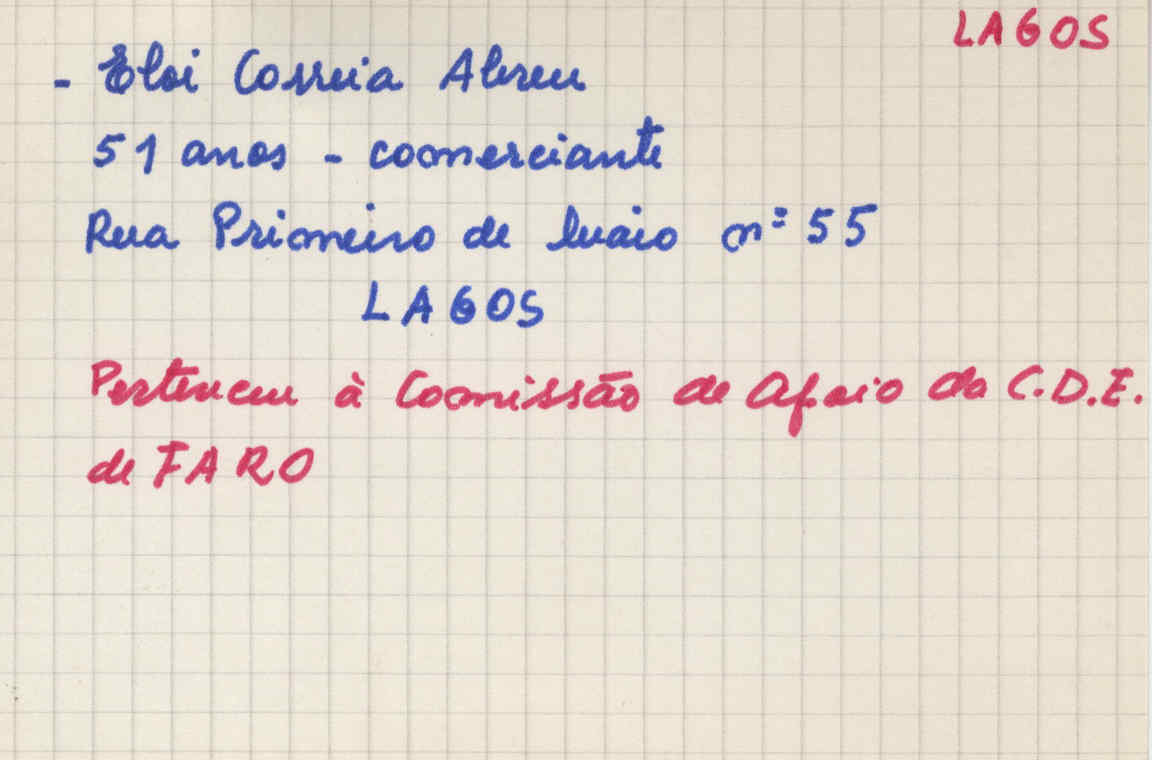 LAGOS
- Eloi Correia Abreu
51 anos - comerciante
Rua Primeiro de Maio nº 55
LAGOS
Pertenceu à Comissão de Apoio da C.D.E.
de FARO